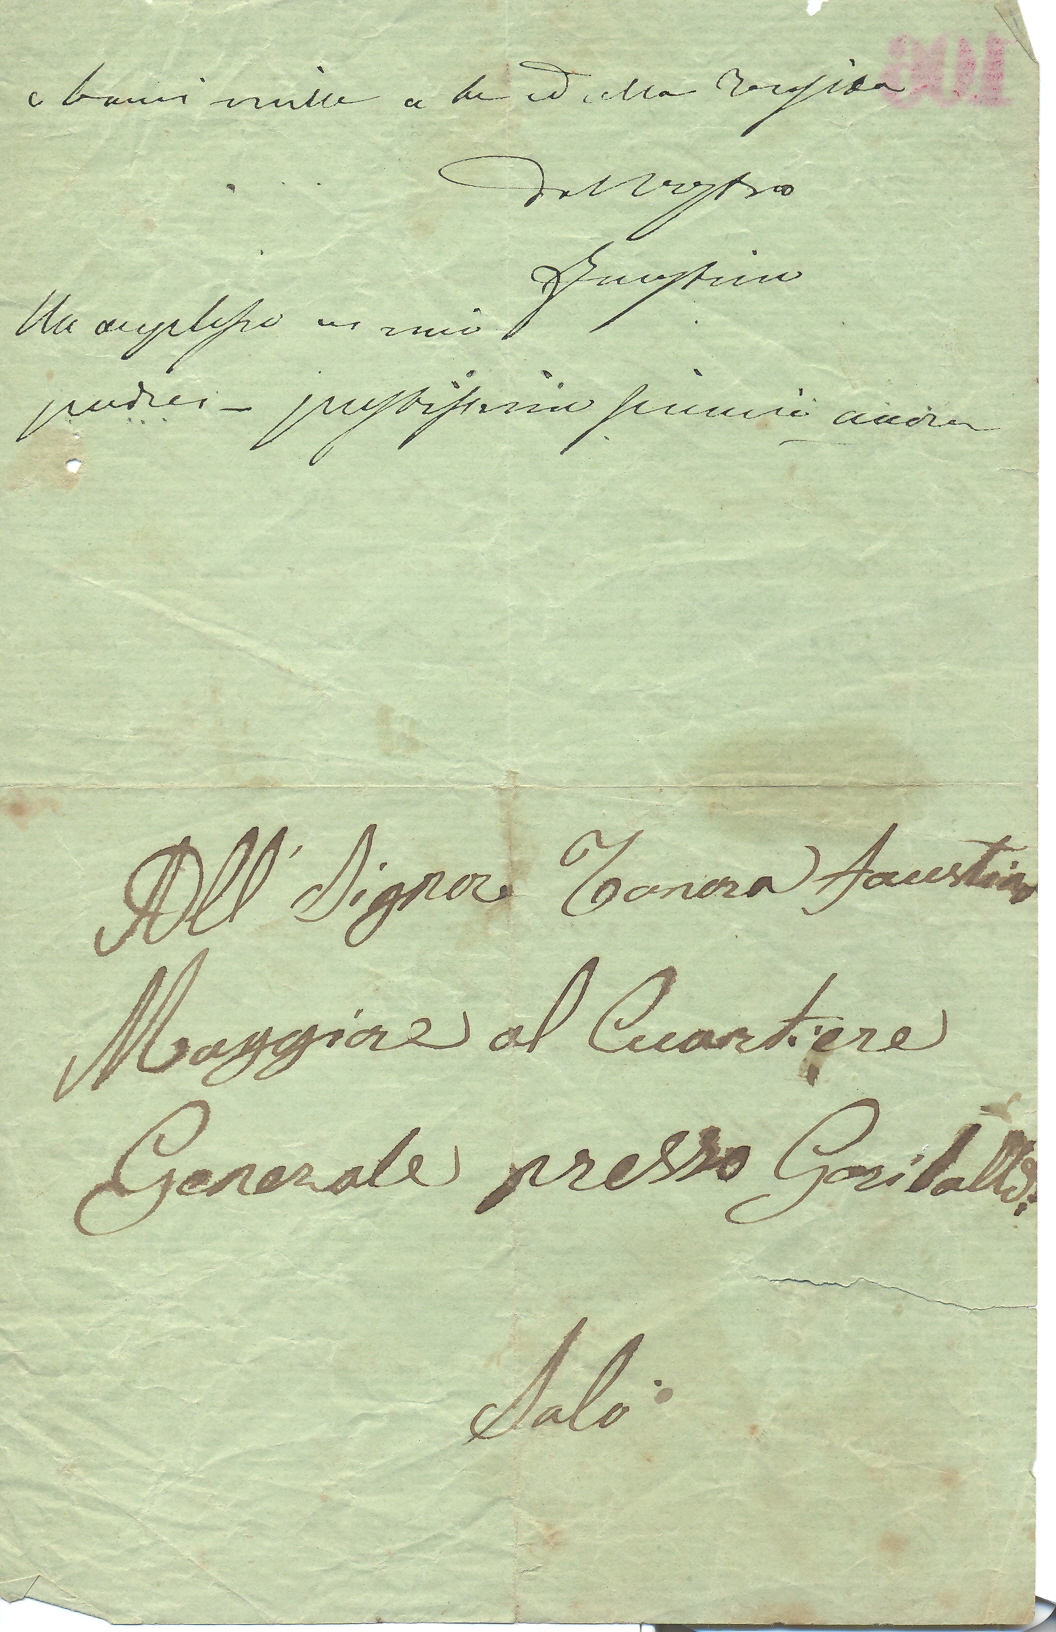 e baci mille a te ed alla
Dal Vostro
Faustino
Un amplesso mio
padre – prestissimo
All' Signor Tonora Faustino
Maggiore al Cuartiere
Generale presso Garibaldi
Salò